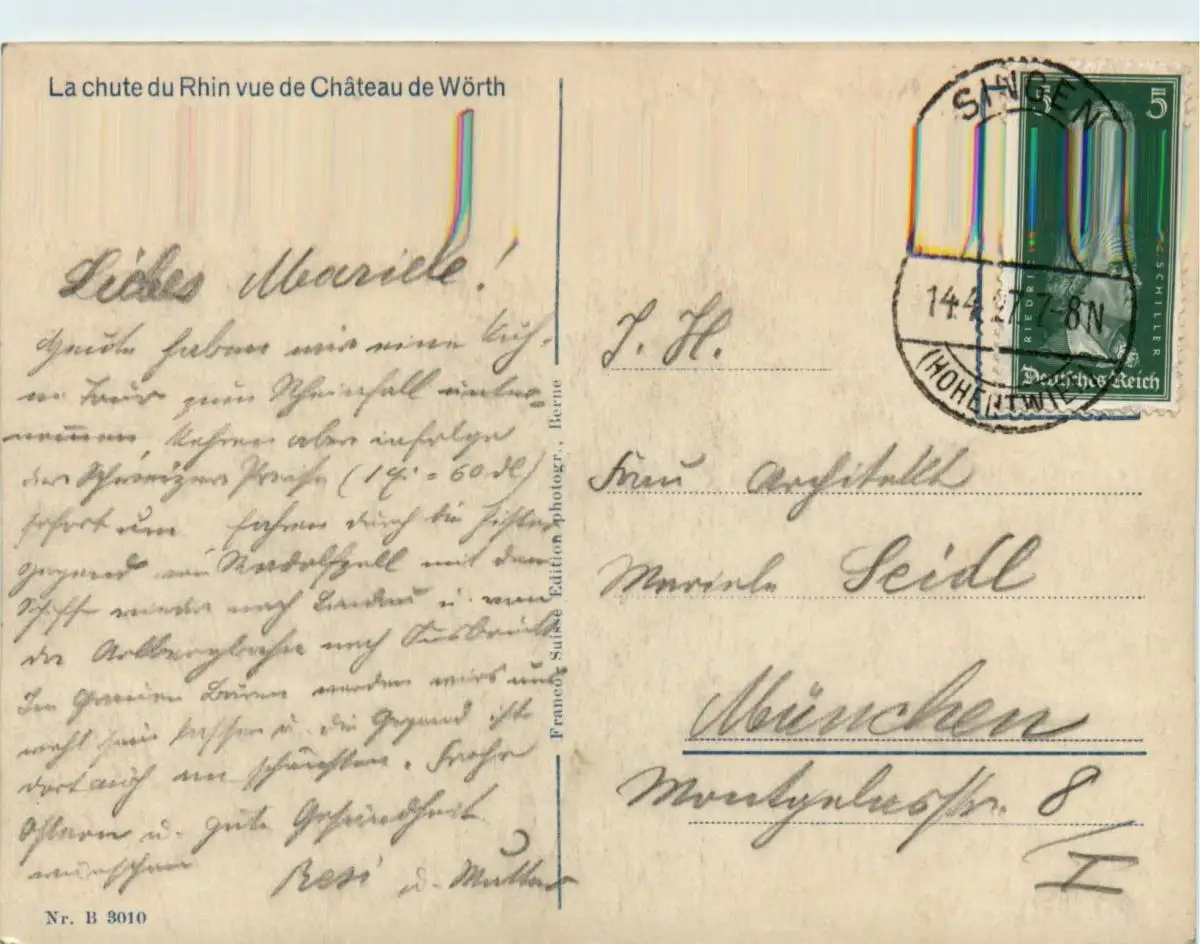 La chute du Rhin vue de Château de Wörth
Liebes Mariele!
Heute haben wir eine
Tour zum Rheinfall unter-
nommen, kehren aber infolge
der Schweizer Preise (1 = 60 dl)
sofort um. fahren durch die
gegend Radolfzell mit dem
Schiffe wieder nach Lindau u. von
da Arlbergbahn nach Insbruck
Im Grauen Bären werden wirs uns
wohl sein lassen u. die Gegend ists
dort auch am schönsten. Frohe
Ostern u. gute Gesundheit
wünschen
Resi u. Mutter
Nr. B 3010
Franco-Suisse Edition photogr., Berne
SINGEN
14.4.27.7-8N
(HOHENTWIEL)
5 5
FRIEDRICH SCHILLER
Deutsches Reich
J. H.
Frau Architekt
Mariele Seidl
München
Montgelasstr. 8
I